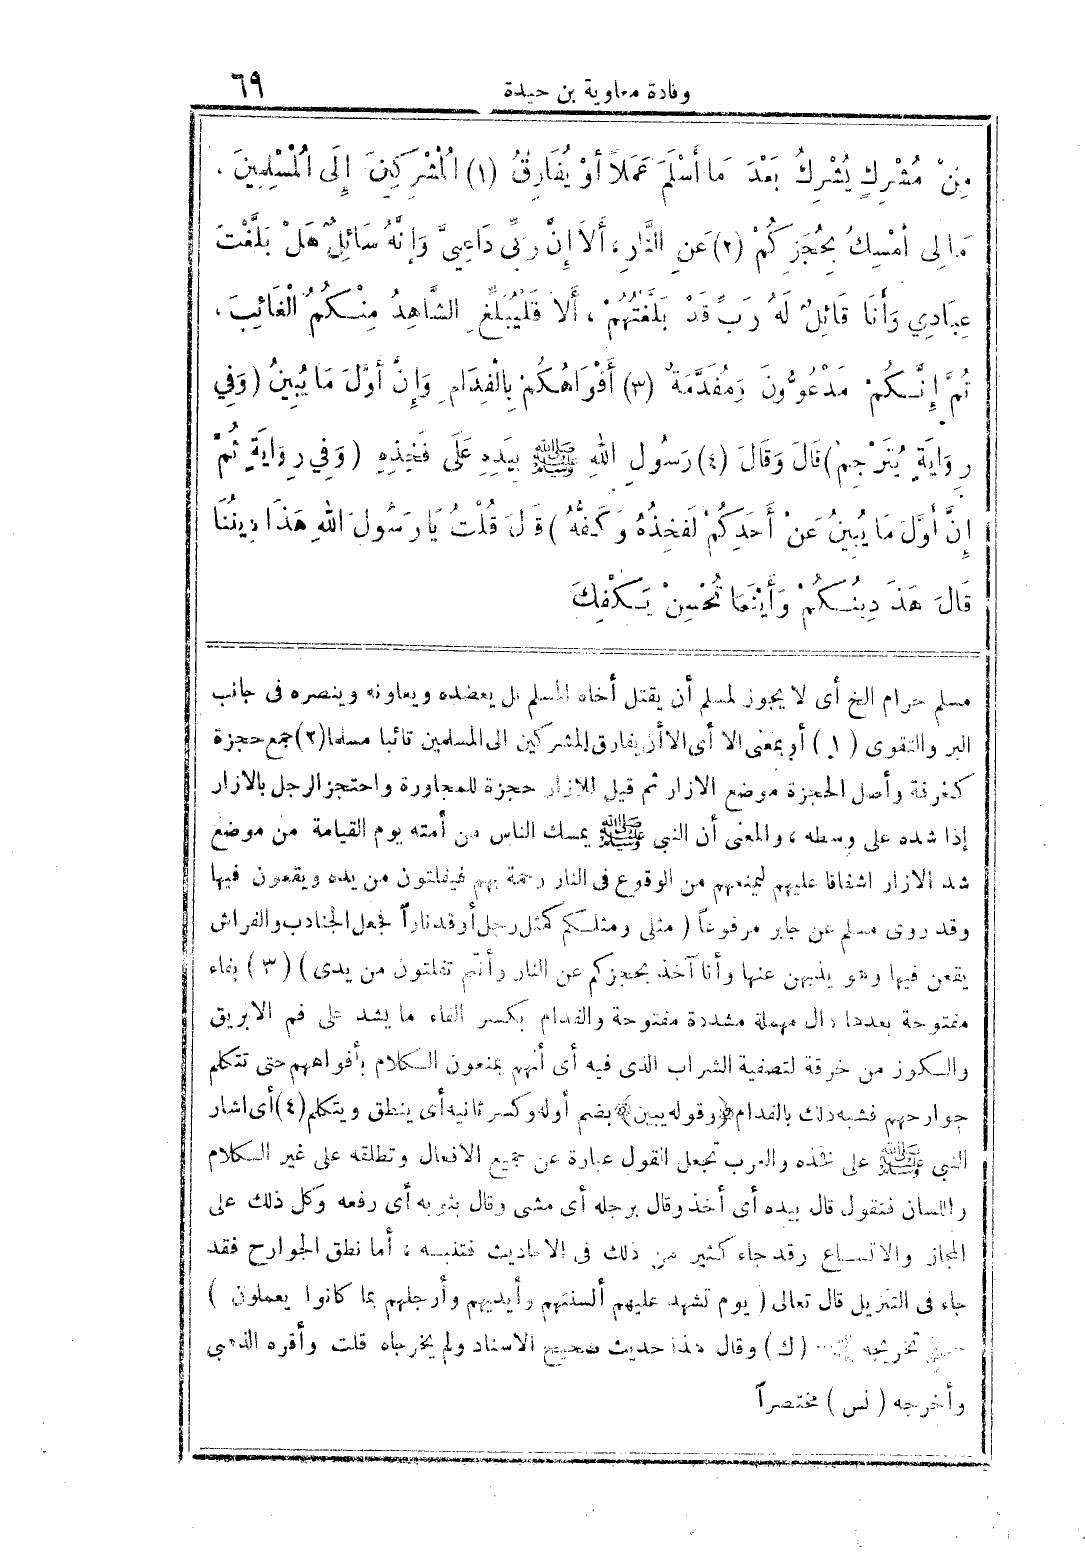 وفادة معاوية بن حيدة ٦٩
مِنْ مُشْرِكٍ يُشْرِكُ بَعْدَ مَا أَسْلَمَ عَمَلاً أوْ يُفَارِقُ (١) الْمُشْرِكِينَ إِلَى الْمُسْلِمِينَ ،
مَا لِى أُمْسِكُ بِحُجَزِكُمْ (٢) عَنِ النَّارِ ، أَلاَ إِنَّ رَبِّى دَاعِيَّ وَإِنَّهُ سَائِلِى هَلْ بَلَّغْتَ
عِبَادِي وَأَنَا قَائِلٌ لَهُ رَبِّ قَدْ بَلَّغْتُهُمْ ، أَلاَ فَلْيُبَلِّغِ الشَّاهِدُ مِنْكُمُ الْغَائِبَ ،
ثُمَّ إِنَّكُمْ مَدْعُوُّونَ وَمُفَدَّمَةٌ (٣) أَفْوَاهُكُمْ بِالْفِدَامِ وَإِنَّ أَوَّلَ مَا يُبِينُ (وَفِي
رِوَايَةٍ يُتَرْجِمُ) قَالَ وَقَالَ (٤) رَسُولُ اللهِ ﷺ بِيَدِهِ عَلَى فَخِذِهِ (وَفِي رِوَايَةٍ ثُمَّ
إِنَّ أَوَّلَ مَا يُبِينُ عَنْ أَحَدِكُمْ لَفَخِذُهُ وَكَفُّهُ) قَالَ قُلْتُ يَا رَسُولَ اللهِ هَذَا دِينُنَا
قَالَ هَذَا دِينُكُمْ وَأَيْنَمَا تُحْسِنْ يَكْفِكَ
مسلم حرام الخ أى لا يجوز لمسلم أن يقتل أخاه المسلم بل يعضده ويعاونه وينصره فى جانب
البر والتقوى (١) أو بمعنى الا أى الا أن يفارق المشركين الى المسلمين تائبا مسلما (٢) جمع حجزة
كغرفة وأصل الحجزة موضع الازار ثم قيل للازار حجزة للمجاورة واحتجز الرجل بالازار
إذا شده على وسطه ، والمعنى أن النبى ﷺ يمسك الناس من أمته يوم القيامة من موضع
شد الازار اشفاقا عليهم ليمنعهم من الوقوع فى النار رحمة بهم فيفلتون من يده ويقعون فيها
وقد روى مسلم عن جابر مرفوعاً (مثلى ومثلكم كمثل رجل أوقد ناراً فجعل الجنادب والفراش
يقعن فيها وهو يذبهن عنها وأنا آخذ بحجزكم عن النار وأنتم تفلتون من يدى) (٣) بفاء
مفتوحة بعدها دال مهملة مشددة مفتوحة والفدام بكسر الفاء ما يشد على فم الابريق
والكوز من خرقة لتصفية الشراب الذى فيه أى أنهم يمنعون الكلام بأفواههم حتى تتكلم
جوارحهم فشبه ذلك بالفدام ﴿وقوله يبين﴾ بضم أوله وكسر ثانيه أى ينطق ويتكلم (٤) أى اشار
النبى ﷺ على فخذه والعرب تجعل القول عبارة عن جميع الافعال وتطلقه على غير الكلام
واللسان فتقول قال بيده أى أخذ وقال برجله أى مشى وقال بثوبه أى رفعه وكل ذلك على
المجاز والاتساع وقد جاء كثير من ذلك فى الاحاديث فتنبه ، أما نطق الجوارح فقد
جاء فى التنزيل قال تعالى (يوم تشهد عليهم ألسنتهم وأيديهم وأرجلهم بما كانوا يعملون)
تخريجه (ك) وقال هذا حديث صحيح الاسناد ولم يخرجاه قلت وأقره الذهبى
وأخرجه (نس) مختصراً